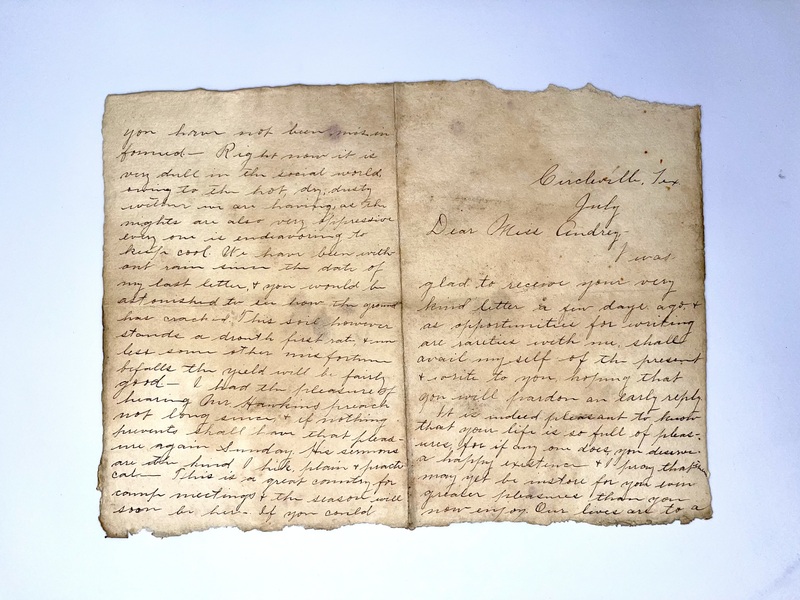 Circleville, Tex
July
Dear Miss Audrey-
I was
glad to receive your very
kind letter a few days ago, &
as opportunities for writing
are rarities with me, shall
avail myself of the present
& write to you, hoping that
you will pardon an early reply.
It is indeed pleasant to know
that your life is so full of pleas-
ures, for if any one does, you deserve
a happy existence & I pray that
may yet be instore for you even
greater pleasures than you
now enjoy. Our lives are to a
you have not been misin
formed- Right now it is
very dull in the social world
owing to the hot, dry, dusty
we are having, as the
nights are also very oppressive
every one is endeavoring to
keep cool. We have been with-
out rain since the date of
my last letter, & you would be
astonished to see how the ground
has cracked. This soil however
stands a drouth first rat & un
less some other misfortune
befalls the yield will be fairly
good- I had the pleasure of
hearing Mr Hawkins preach
not long since & if nothing
prevents shall have that pleas-
ure again Sunday. His sermons
are the kind I like, plain & practi
cal- This is a great country for
camp meetings & the season will
soon be here. If you could